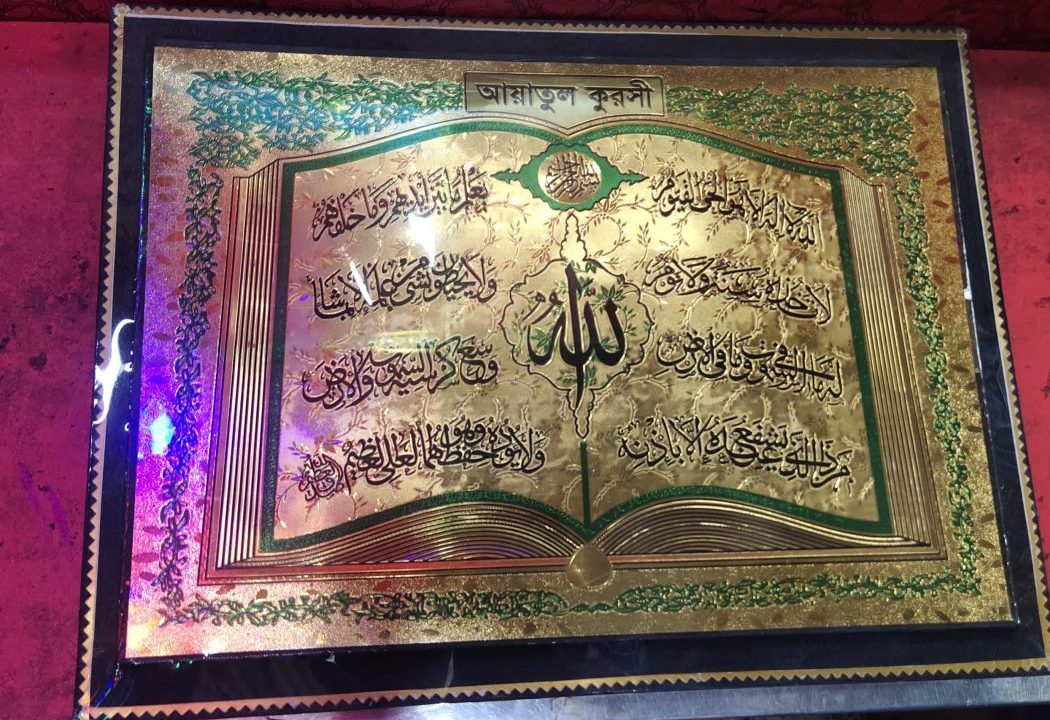 আয়াতুল কুরসী
الله لا اله الا هو الحي القيوم
لا تاخذه سنة ولا نوم
له ما في السموت وما في الارض
من ذا الذي يشفع عنده الا باذنه
الله
يعلم ما بين ايديهم وما خلفهم
ولا يحيطون بشيء من علمه الا بما شاء
وسع كرسيه السموت والارض
ولا يوده حفظهما وهو العلي العظيم